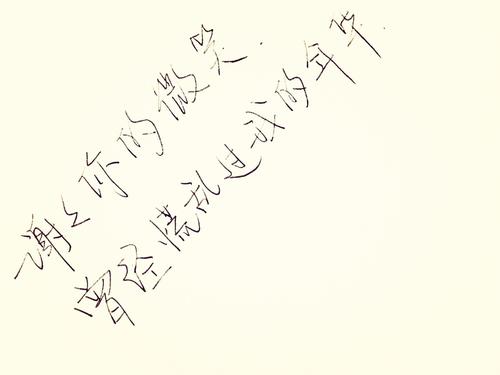 谢々你的微笑.
曾经慌乱过我的年华.